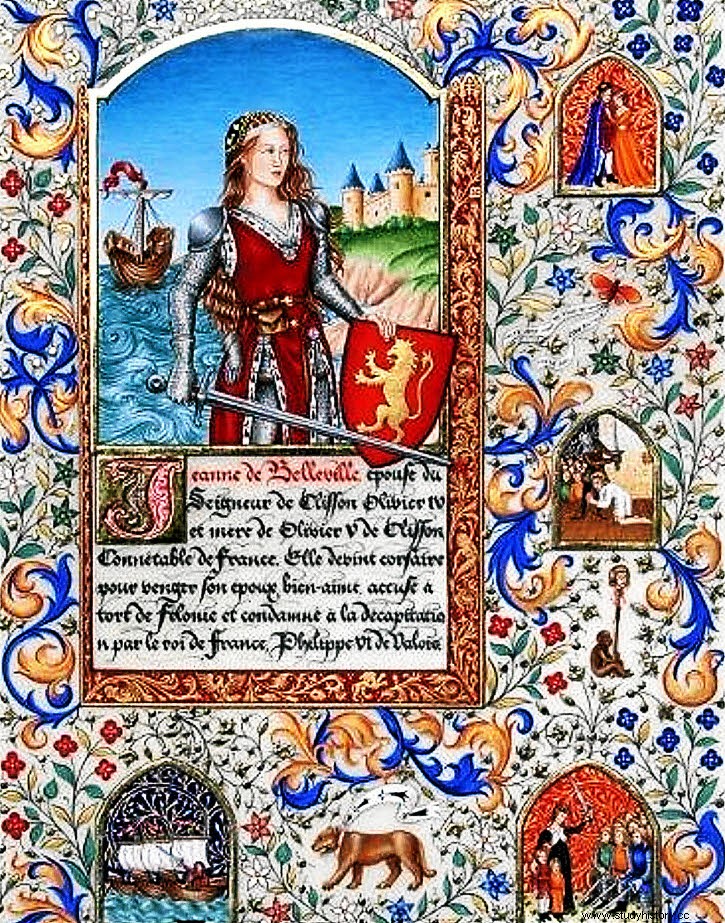 Jeanne de Belleville, épouse du
Seigneur de Clisson Olivier IV
et mère de Olivier V de Clisson
Connétable de France. Elle devint corsaire
pour venger son époux bien-aimé, accusé à
tort de félonie et condamné à la décapitatio
n par le roi de France, Philippe VI de Valois.
www.studyhistory.cc